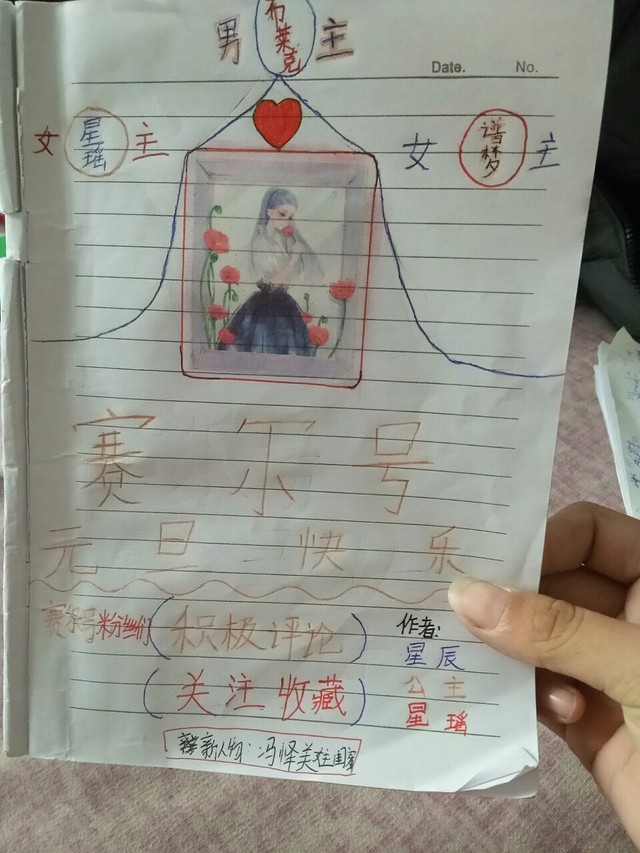 男 布莱克 主
Date. No.
女 星瑶 主
女 谱梦 主
赛尔号
元旦快乐
赛尔号粉丝们(积极评论)
(关注收藏)
作者:
星辰
公主
星瑶
新人物:冯怿美在闺蜜